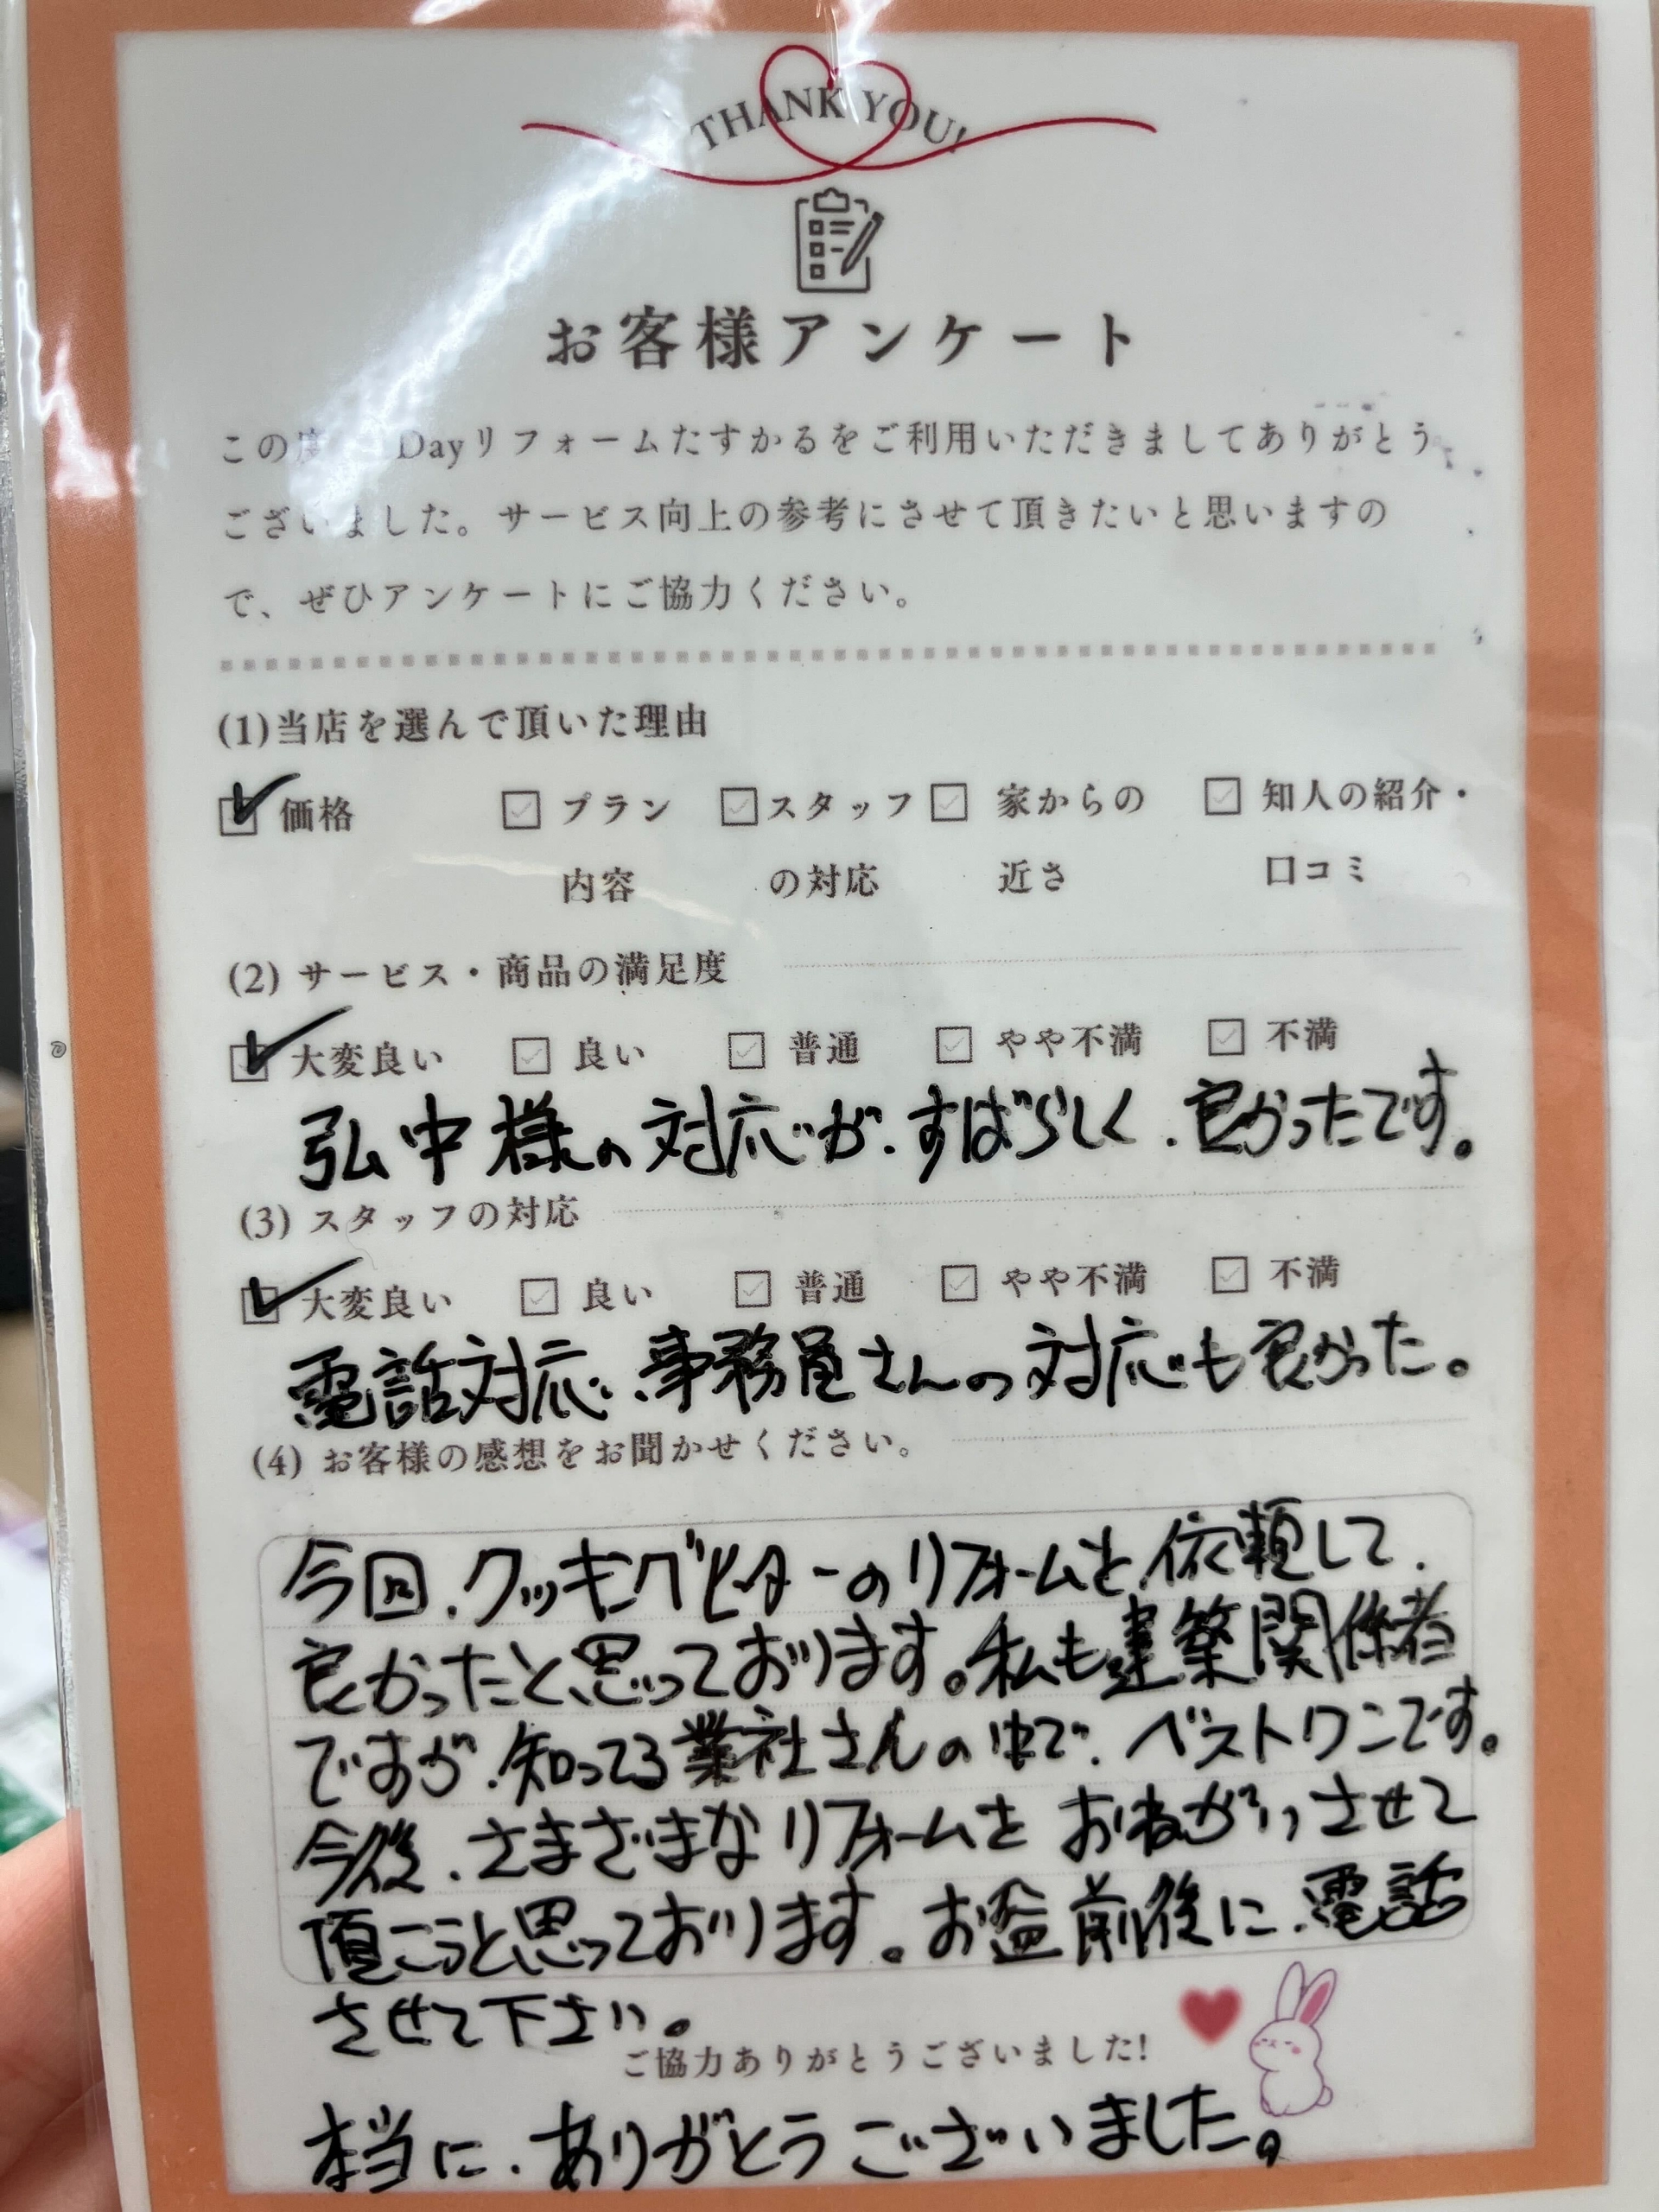 THANK YOU!
お客様アンケート
この度 Dayリフォームたすかるをご利用いただきましてありがとう
ございました。サービス向上の参考にさせて頂きたいと思いますの
で、ぜひアンケートにご協力ください。
(1)当店を選んで頂いた理由
価格 プラン スタッフ 家からの 知人の紹介・
内容 の対応 近さ 口コミ
(2) サービス・商品の満足度
大変良い 良い 普通 やや不満 不満
弘中様の対応が、すばらしく、良かったです。
(3) スタッフの対応
大変良い 良い 普通 やや不満 不満
電話対応、事務員さんの対応も良かった。
(4) お客様の感想をお聞かせください。
今回、クッキングヒーターのリフォームを、依頼して、
良かったと、思っております。私も建築関係者
ですが、知ってる業社さんの中で、ベストワンです。
今後、さまざまなリフォームを おねがいさせて
頂こうと思っております。お盆前後に、電話
させて下さい。
ご協力ありがとうございました!
本当に、ありがとうございました。